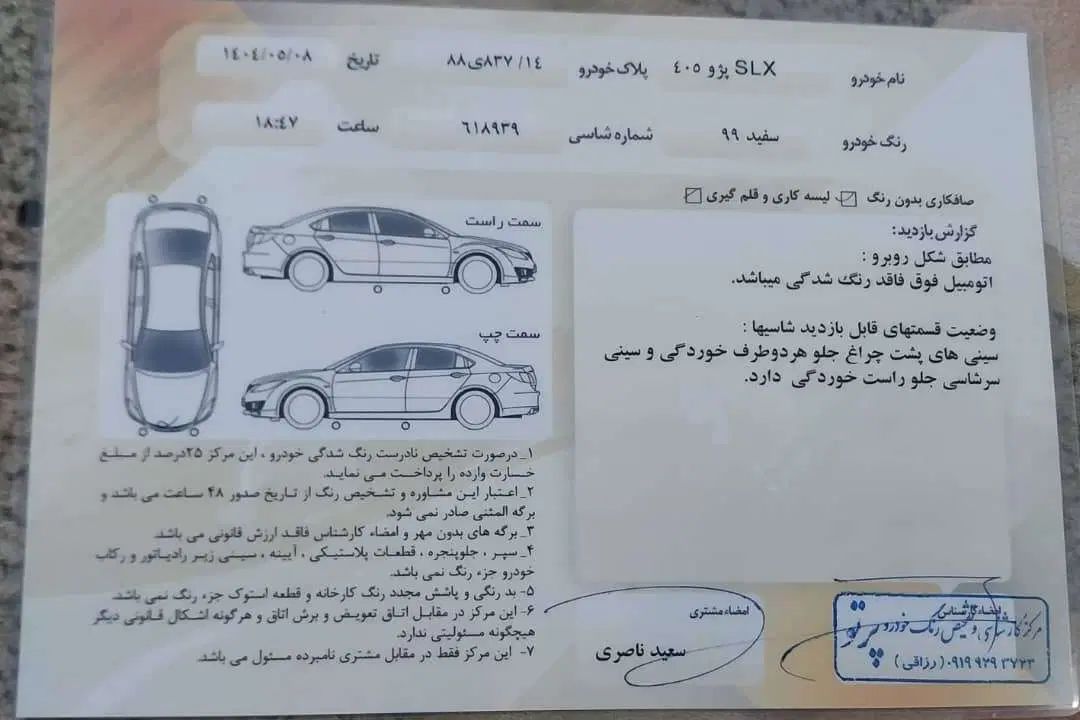 نام خودرو SLX پژو ٤٠٥ پلاک خودرو ٨٨ی٨٣٧/ ١٤ تاریخ ١٤٠٤/٠٥/٠٨
رنگ خودرو سفید ٩٩ شماره شاسی ٦١٨٩٣٩ ساعت ١٨:٤٧
صافکاری بدون رنگ لیسه کاری و قلم گیری
گزارش بازدید:
مطابق شکل روبرو :
اتومبیل فوق فاقد رنگ شدگی میباشد.
وضعیت قسمتهای قابل بازدید شاسیها :
سینی های پشت چراغ جلو هردوطرف خوردگی و سینی
سرشاسی جلو راست خوردگی دارد.
سمت راست
سمت چپ
١_درصورت تشخیص نادرست رنگ شدگی خودرو ، این مرکز ٢٥درصد از مبلغ
خسارت وارده را پرداخت می نماید.
٢_اعتبار این مشاوره و تشخیص رنگ از تاریخ صدور ٤٨ ساعت می باشد و
برگه المثنی صادر نمی شود.
٣_ برگه های بدون مهر و امضاء کارشناس فاقد ارزش قانونی می باشد.
٤_ سپر ، جلوپنجره ، قطعات پلاستیکی ، آیینه ، سینی زیر رادیاتور و رکاب
خودرو جزء رنگ نمی باشد.
٥- بد رنگی و پاشش مجدد رنگ کارخانه و قطعه استوک جزء رنگ نمی باشد.
٦- این مرکز در مقابل اتاق تعویض و برش اتاق و هرگونه اشکال قانونی دیگر
هیچگونه مسئولیتی ندارد.
٧- این مرکز فقط در مقابل مشتری نامبرده مسئول می باشد.
امضاء مشتری
سعید ناصری
امضاء کارشناس
مرکز کارشناسی و تشخیص رنگ خودرو پرتو
٠٩١٩ ٩٢٩ ٣٧٢٣ (رزاقی)